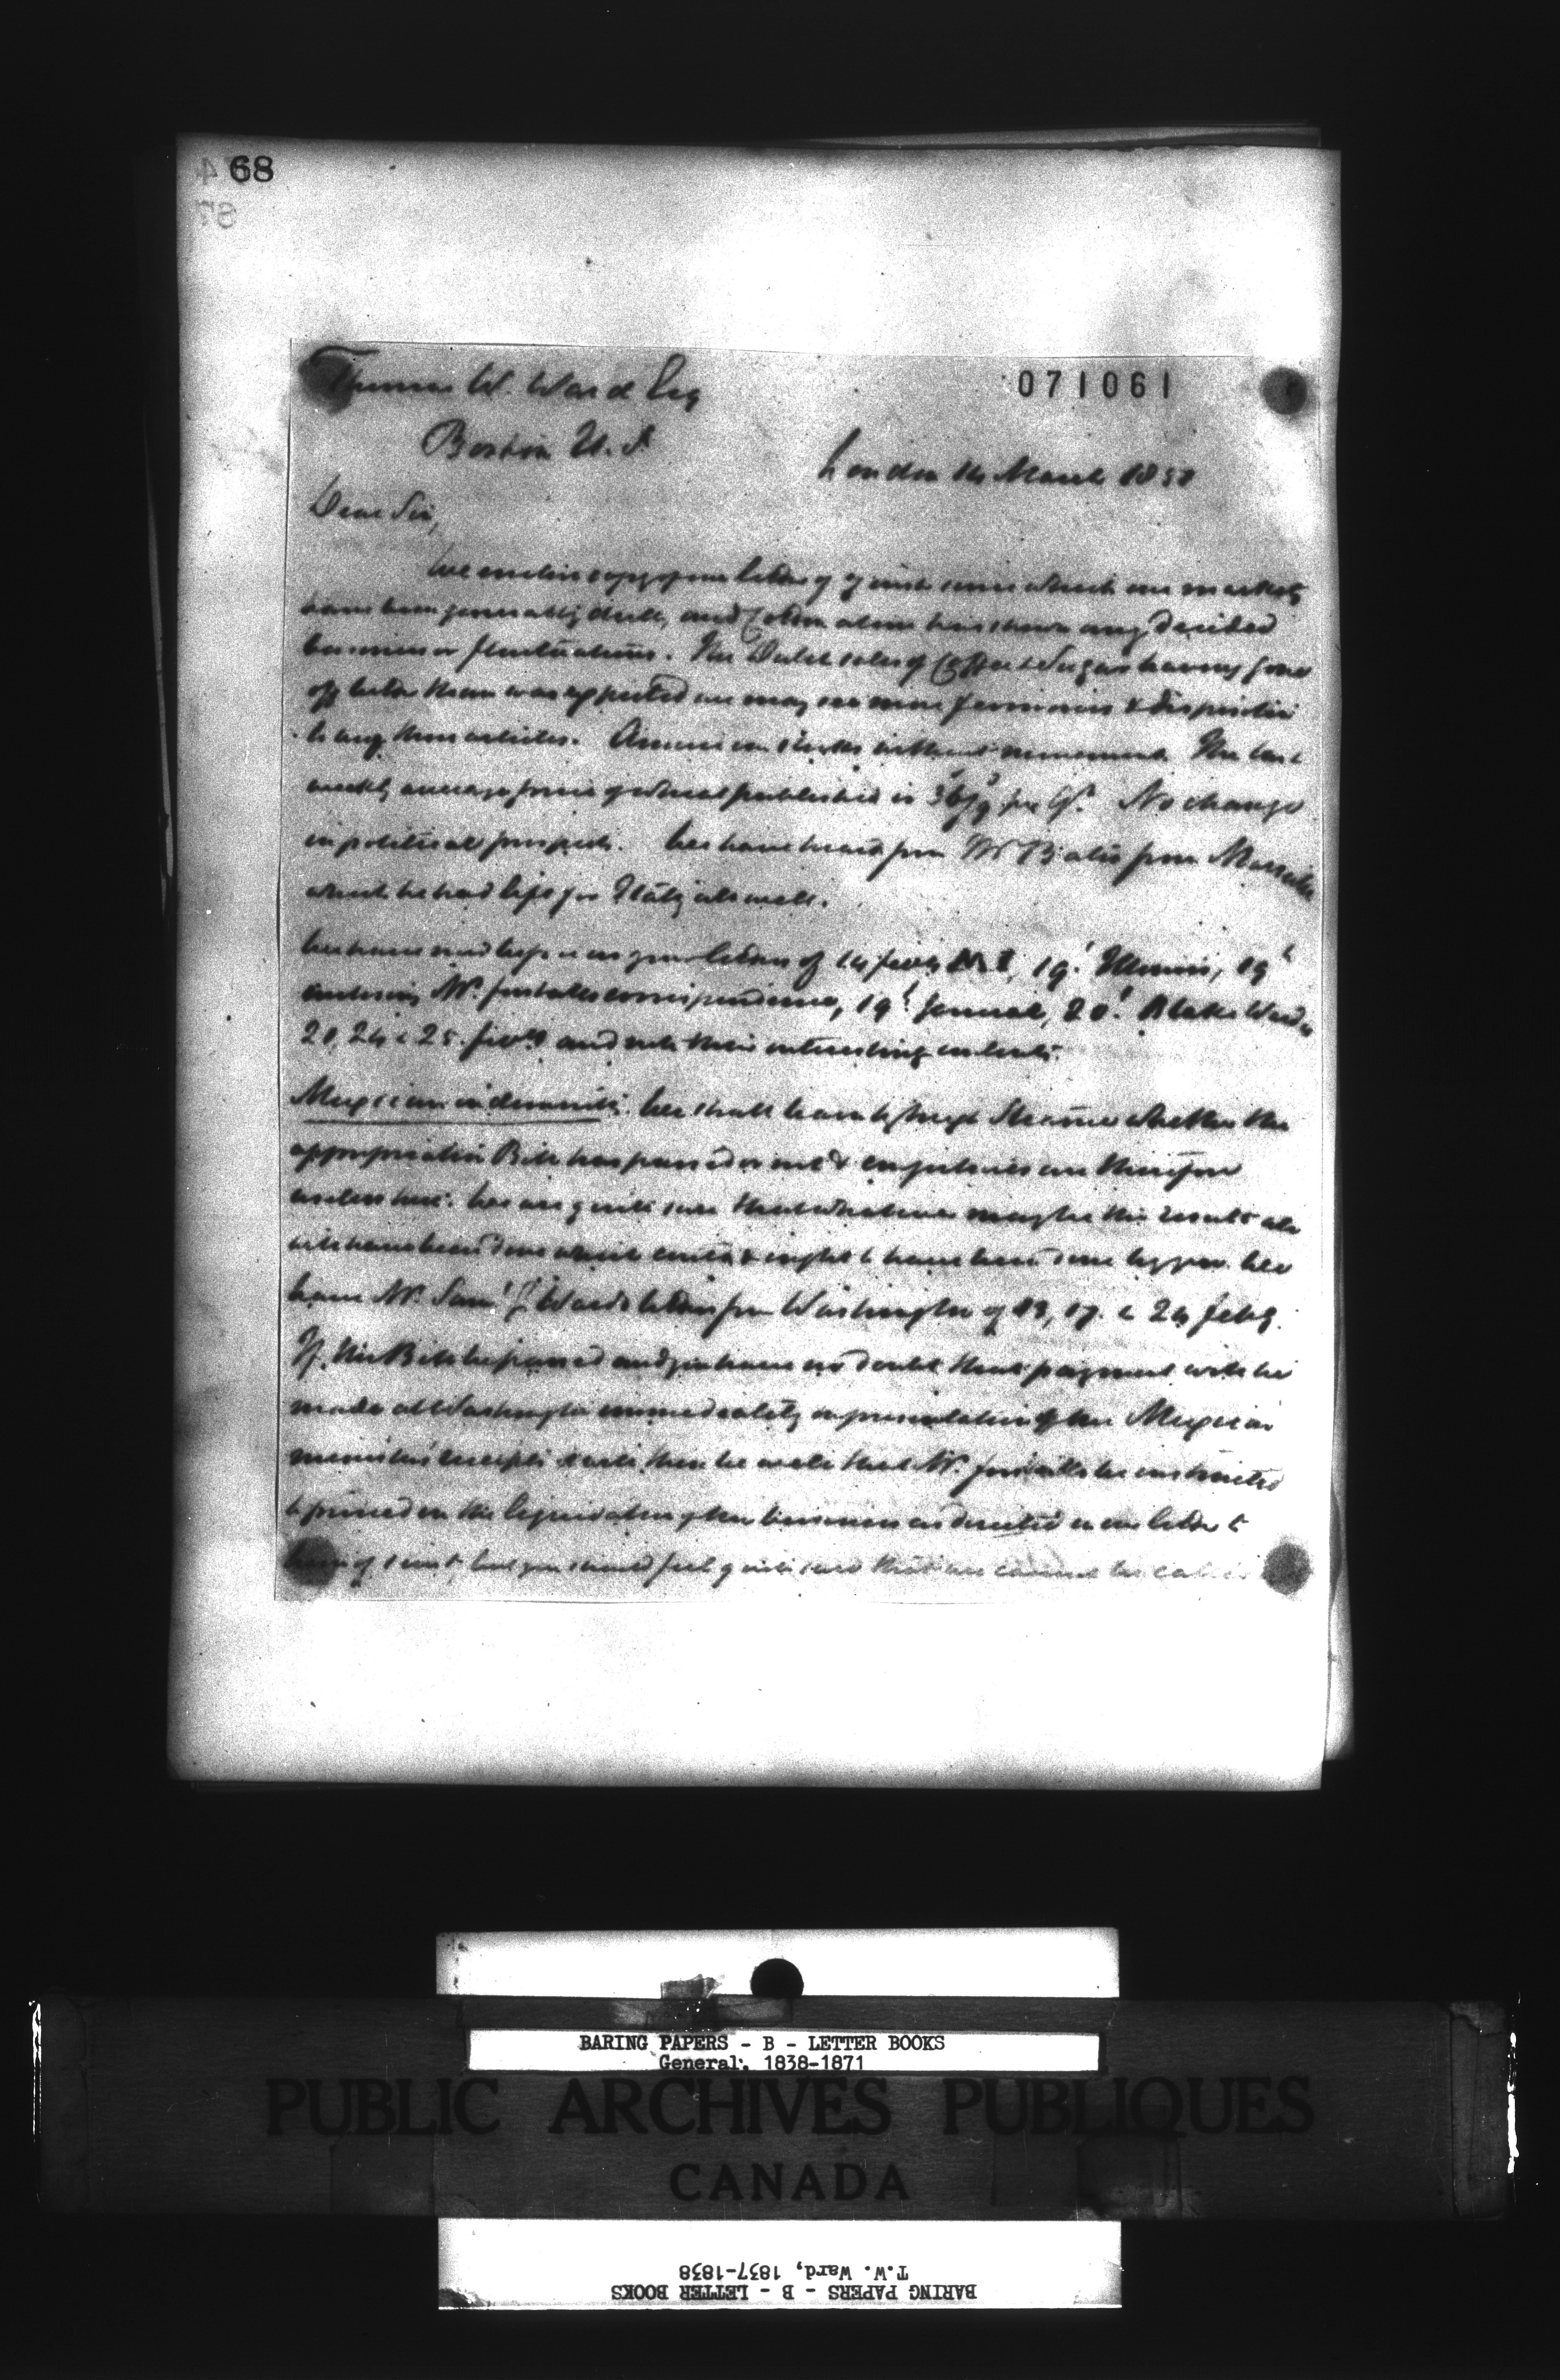 68
071061
Thomas W. Ward Esq
Boston U.S
London 14 March 1851
Dear Sir,
We enclose copy of our letter of 7 inst since which our markets
have been generally dull, and Cotton alone has shown any decided
business or fluctuations. The Dutch sales of Coffee & Sugar having gone
off better than was expected we may see more firmness & disposition
to buy these articles. American stocks without movement. The last
weekly average price of wheat published is per Qr. No change
in political prospects. We have heard from Mr Bates from Marseilles
which he had left for Italy all well.
We have now before us your letters of 14 Feby 19' 19'
enclosing Mr. correspondence, 19' General, 20'
20, 24 & 25 and note their interesting contents.
Mexican indemnity. We shall learn by next Steamer whether the
appropriation Bill has passed or not & conjectures are therefore
useless here. We are quite sure that whatever may be the result all
will have been done which could & ought to have been done by you. We
have Mr. Saml Ward's letters from Washington of 13, 17. & 24 Feby.
If the Bill be passed and you have no doubt that payment will be
made at Washington immediately on presentation of the Mexican
minister's receipts it will then be well that Mr. be instructed
to proceed in the liquidation of the business as directed in our letter to
but you should feel quite sure that we cannot be called
BARING PAPERS - B - LETTER BOOKS
General, 1838-1871
PUBLIC ARCHIVES PUBLIQUES
CANADA
T.W. Ward, 1837-1838
BARING PAPERS - B - LETTER BOOKS